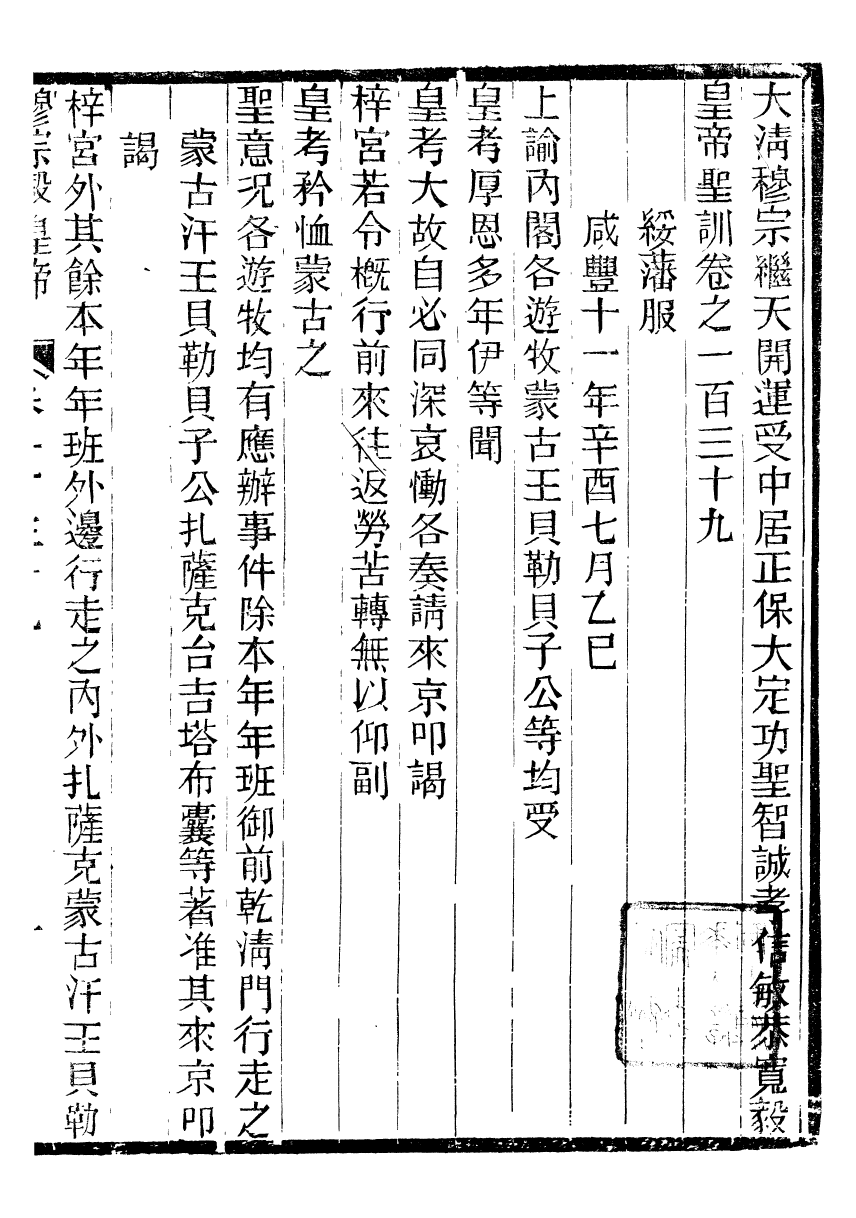 大清穆宗繼天開運受中居正保大定功聖智誠孝信敏恭寬毅
皇帝聖訓卷之一百三十九
綏藩服
咸豐十一年辛酉七月乙巳
上諭內閣各遊牧蒙古王貝勒貝子公等均受
皇考厚恩多年伊等聞
皇考大故自必同深哀慟各奏請來京叩謁
梓宮若令概行前來往返勞苦轉無以仰副
皇考矜恤蒙古之
聖意況各遊牧均有應辦事件除本年年班御前乾清門行走之
蒙古汗王貝勒貝子公扎薩克台吉塔布囊等著准其來京叩
謁
梓宮外其餘本年年班外邊行走之內外扎薩克蒙古汗王貝勒
穆宗毅皇帝